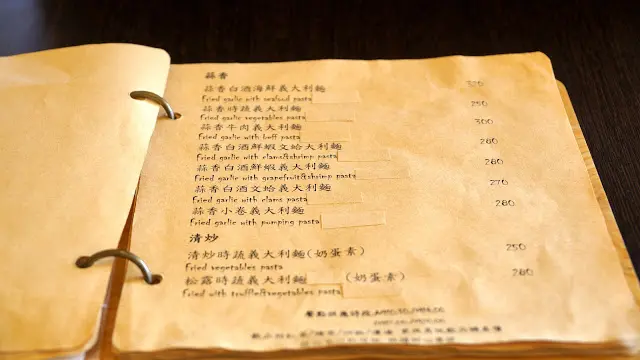 蒜香
蒜香白酒海鮮義大利麵
Fried garlic with seafood pasta
蒜香時蔬義大利麵 250
Fried garlic vegetables pasta
蒜香牛肉義大利麵 300
Fried garlic with beff pasta
蒜香白酒鮮蝦文蛤大利麵 280
Fried garlic with clams&shrimp pasta
蒜香白酒鮮蝦義大利麵 280
Fried garlic with grapefruit&shrimp pasta
蒜香白酒文蛤義大利麵 270
Fried garlic with clams pasta
蒜香小卷義大利麵 280
Fried garlic with pumping pasta
清炒
清炒時蔬義大利麵(奶蛋素) 250
Fried vegetables pasta
松露時蔬義大利麵 (奶蛋素) 280
Fried with truffle&vegetables pasta